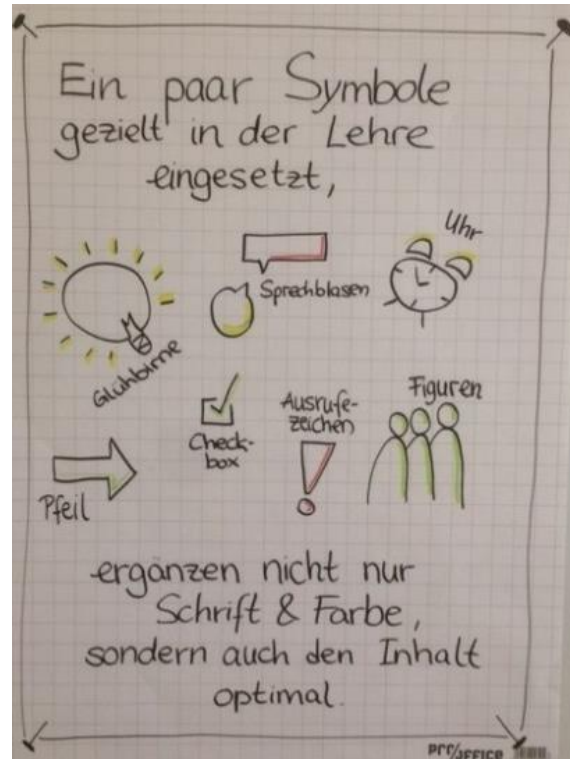 Ein paar Symbole
gezielt in der Lehre
eingesetzt,
Uhr
Sprechblasen
Glühbirne
Check-
box
Ausrufe-
zeichen
Figuren
Pfeil
ergänzen nicht nur
Schrift & Farbe,
sondern auch den Inhalt
optimal.